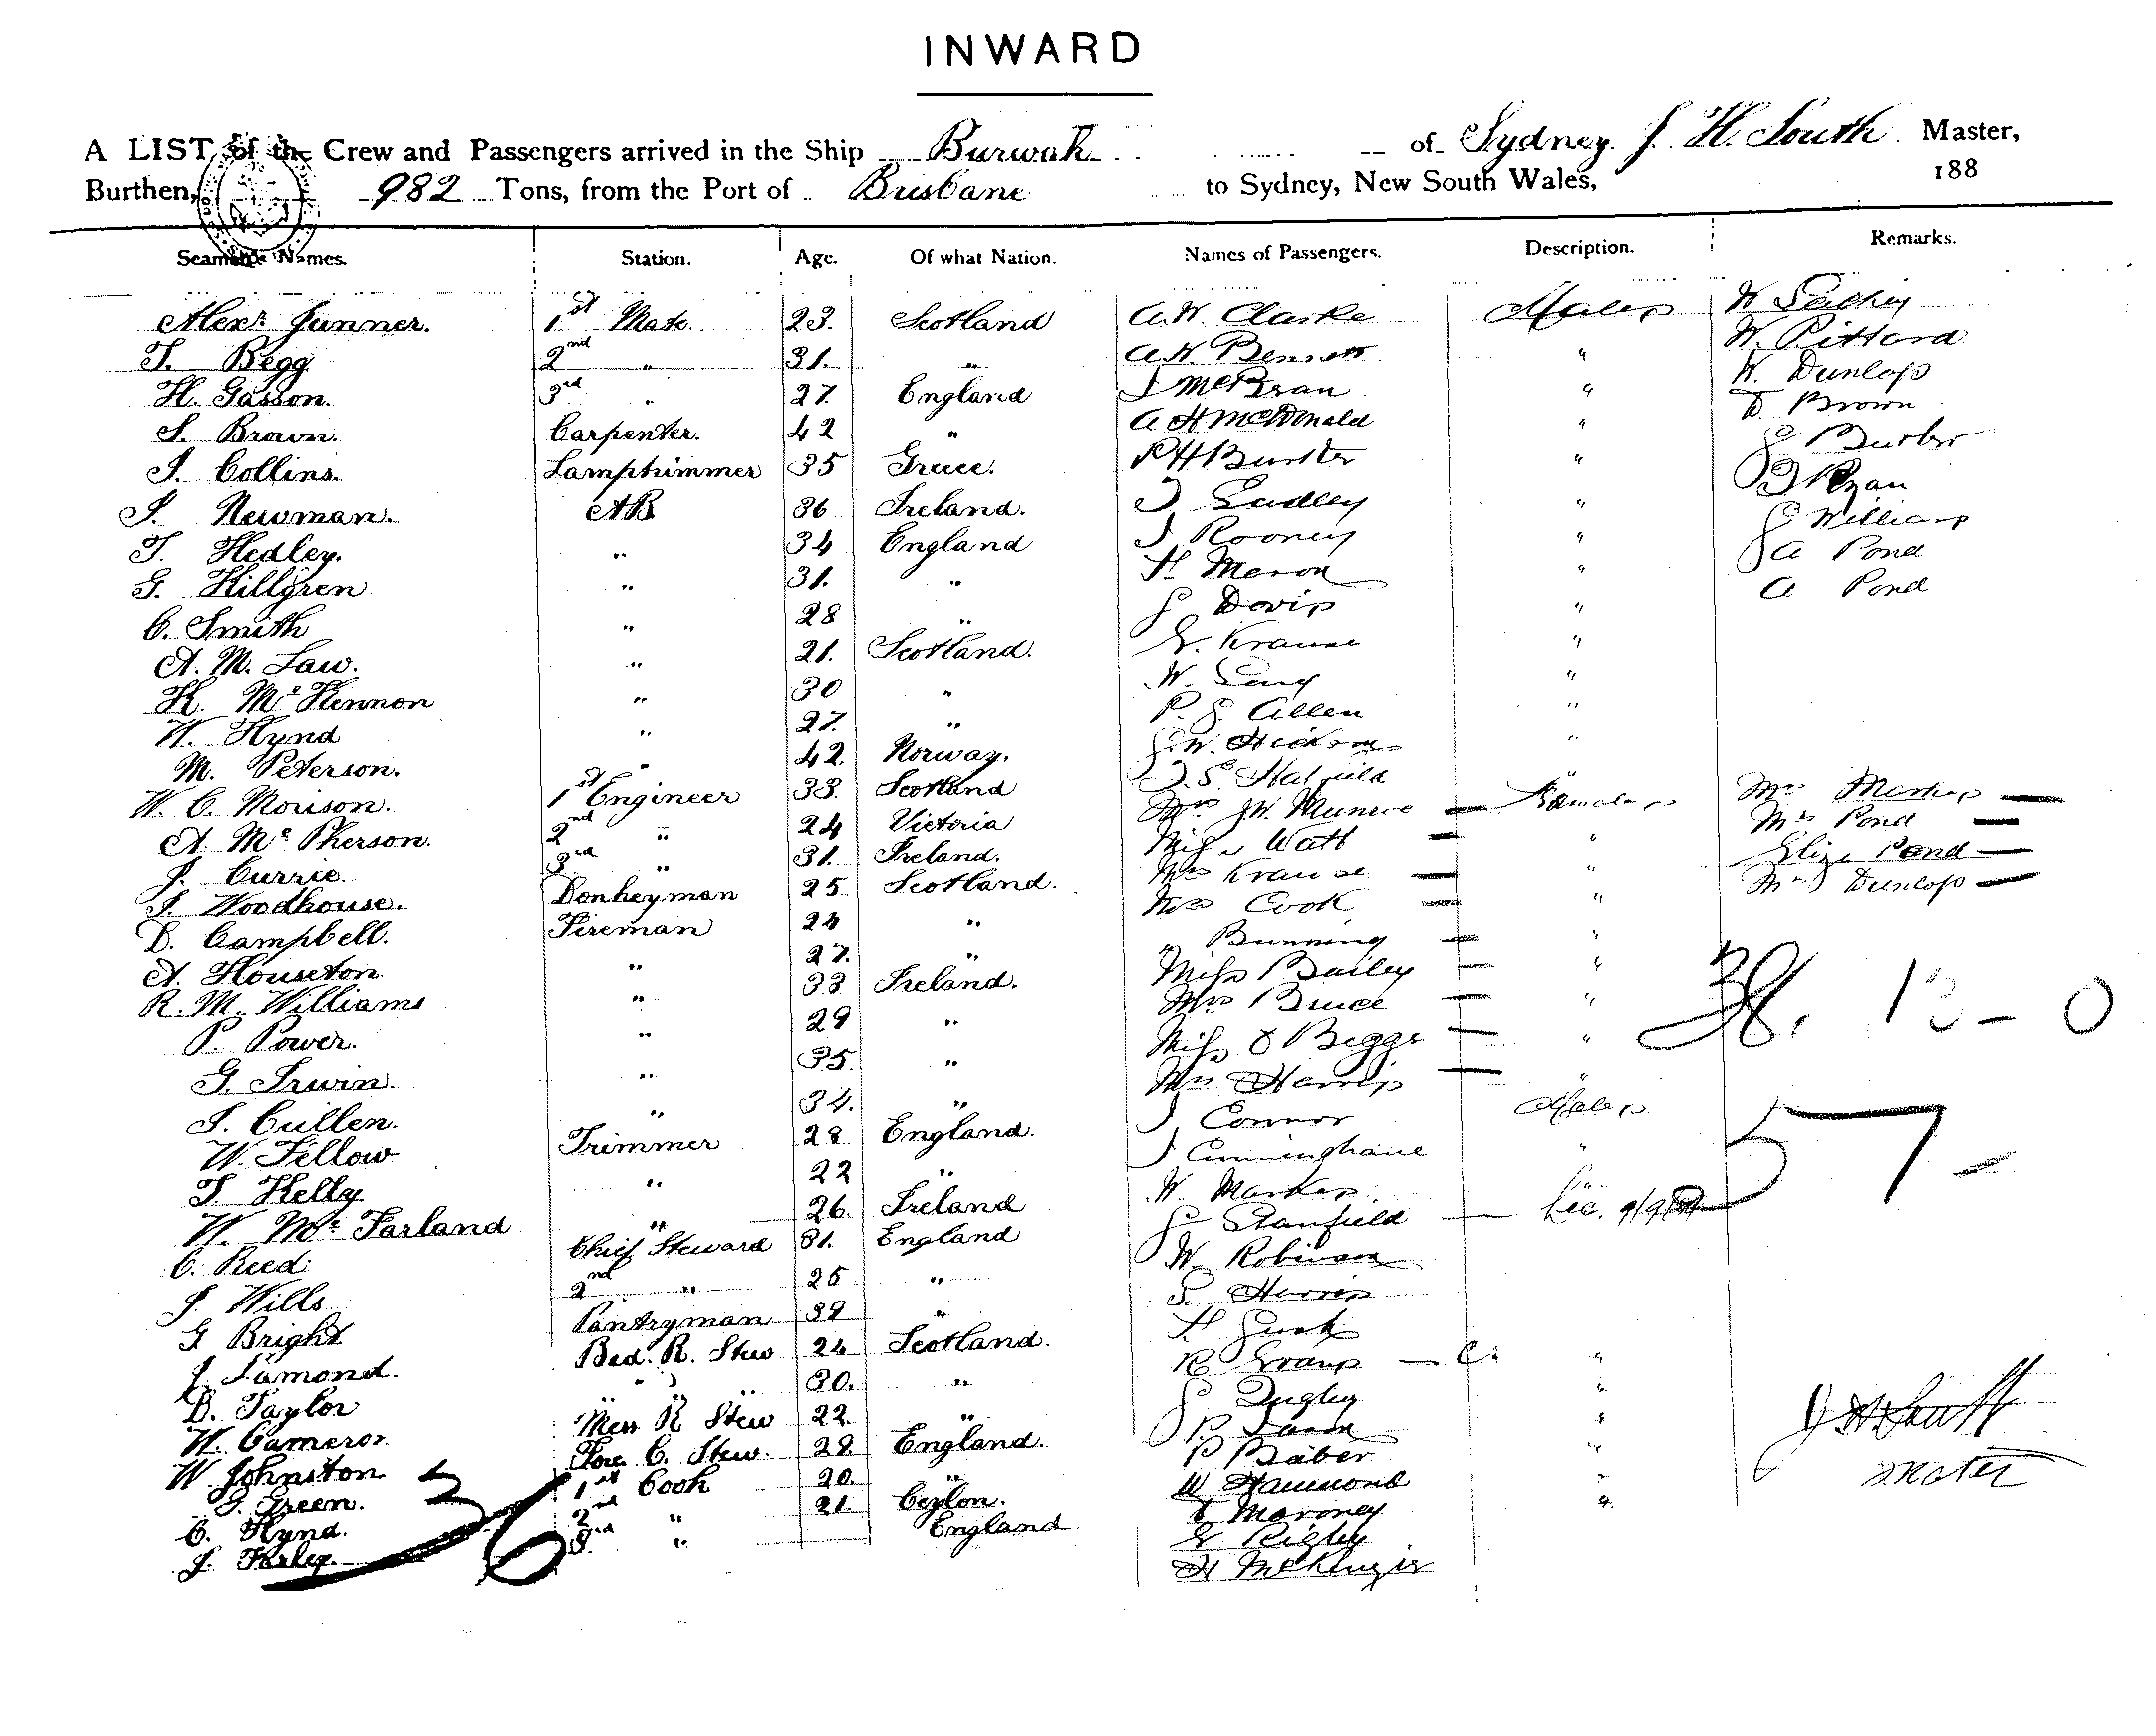 INWARD
A LIST of the Crew and Passengers arrived in the Ship Burwah of Sydney J. H. South Master,
Burthen, 982 Tons, from the Port of Brisbane to Sydney, New South Wales, 188
Seamen's Names. Station. Age. Of what Nation. Names of Passengers. Description. Remarks.
Alexr. Junner. 1st Mate 23. Scotland A. W. Clarke Males W
T. Begg 2nd " 31. " A. H. Bennett " W. Pittard
H. Gasson. 3rd " 27. England J McBean " W. Dunlop
S. Brown. Carpenter. 42 " A H McDonald " D Brown
J. Collins. Lamptrimmer 35 Greece. P H Bunter "
J. Newman. AB 36 Ireland. J " J Ryan
T. Hedley. " 34 England J Rooney " J Williams
G. Hillgren " 31. " H " J A Pond
C. Smith " 28 " J Davis " A Pond
A. M. Law. " 21. Scotland. E. Krause "
K. McKennon " 30 " W. Lang "
W. Hynd " 27. " P. J. Allen "
M. Peterson. " 42. Norway. J. W. "
W. C. Morison. 1st Engineer 33. Scotland J. S. Hatfield " Mrs
A. McPherson. 2nd " 24 Victoria Mrs J W Munroe — Females Mrs Pond —
J. Currie. 3rd " 31. Ireland. Miss Watt — " Eliza Pond —
J. Woodhouse. Donkeyman 25 Scotland. Mrs Krause — " Mrs Dunlop —
D. Campbell. Fireman 24 " Mrs Cook — "
A. Houseton " 27. " Bunning — "
R. M. Williams " 33 Ireland. Miss Bailey — " 38. 13 - 0
P. Power. " 29 " Mrs Bruce — "
G. Irwin. " 35. " Miss Beggs — "
J. Cullen. " 34. " Mrs Harris — "
W. Fellow Trimmer 28 England. J Connor Males
T. Kelly " 22 " J Cunninghame " 57 -
W. McFarland " 26. Ireland W
C. Reed Chief Steward 31. England J Stanfield —
J. Wills 2nd " 25 " W. Robinson
G Bright Pantryman 39 " S. Harris
J. Lamond. Bed. R. Stew 24 Scotland. H
D. Taylor " " " 30. " R Evans — C. "
W. Cameron Mess R Stew 22. " J "
W Johnston Fore C. Stew. 28 England. P. "
G. Green. 1st Cook 20. " P Baber "
C. Hynd. 2nd " 21. Ceylon. W Hammond "
J. 3rd " England T Maroney "
36 E Rigby
H McKenzie
J H South
Master